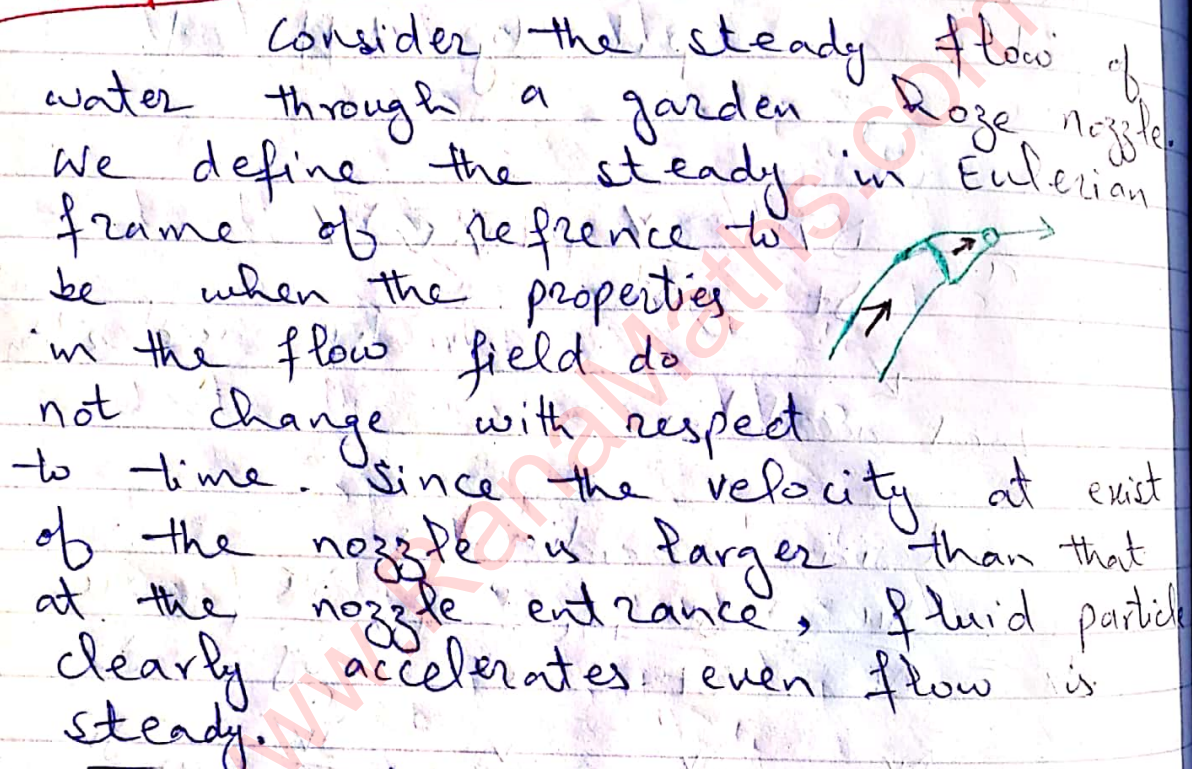 Consider the steady flow of
water through a garden hoze nozzle.
We define the steady in Eulerian
frame of refrence to
be when the properties
in the flow field do
not change with respect
to time. Since the velocity at exist
of the nozzle is larger than that
at the nozzle entrance, fluid particle
clearly accelerates even flow is
steady.
www.RanaMaths.com